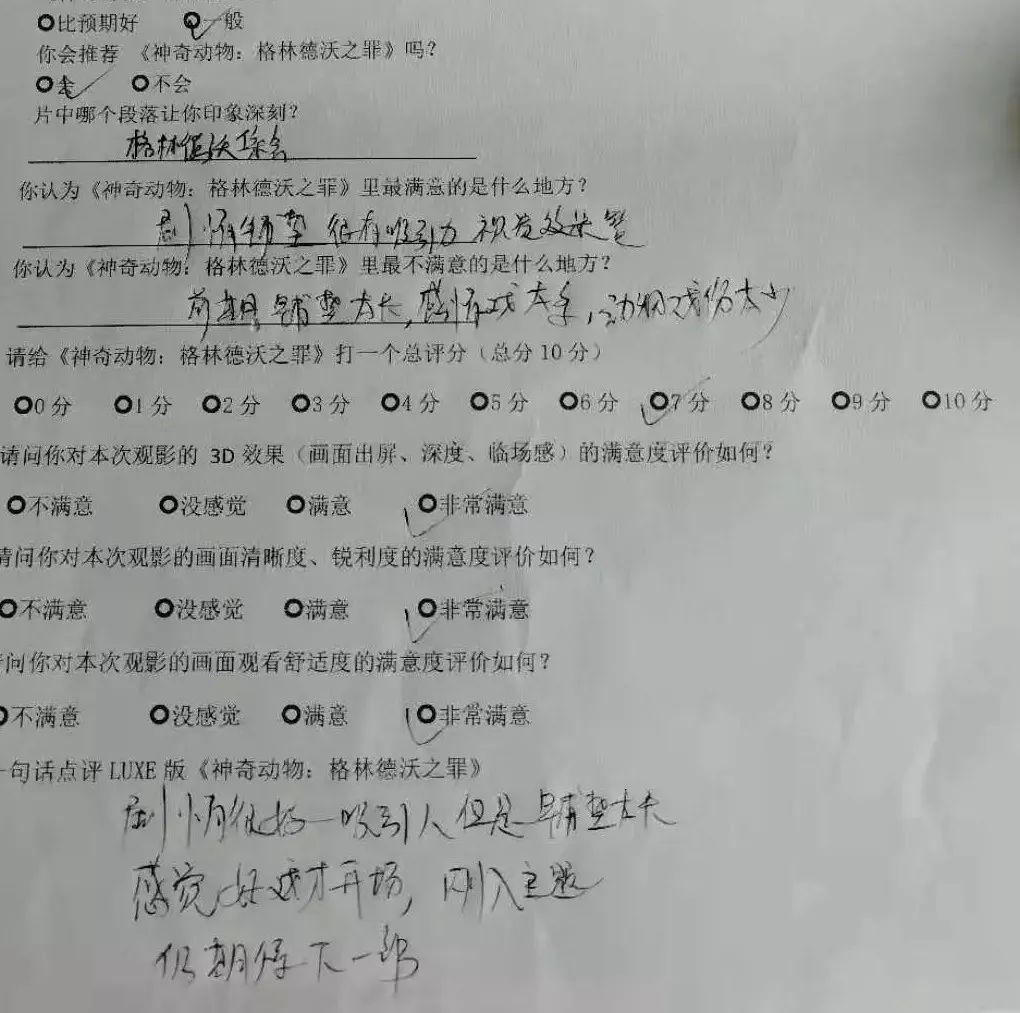 比预期好 一般
你会推荐 《神奇动物：格林德沃之罪》吗？
会 不会
片中哪个段落让你印象深刻？
格林德沃集会
你认为《神奇动物：格林德沃之罪》里最满意的是什么地方？
剧情铺垫很有吸引力 视觉效果
你认为《神奇动物：格林德沃之罪》里最不满意的是什么地方？
前期铺垫太长，感情戏太多，动物戏份太少
请给《神奇动物：格林德沃之罪》打一个总评分（总分10分）
0分 1分 2分 3分 4分 5分 6分 7分 8分 9分 10分
请问你对本次观影的 3D 效果（画面出屏、深度、临场感）的满意度评价如何？
不满意 没感觉 满意 非常满意
请问你对本次观影的画面清晰度、锐利度的满意度评价如何？
不满意 没感觉 满意 非常满意
问你对本次观影的画面观看舒适度的满意度评价如何？
不满意 没感觉 满意 非常满意
一句话点评 LUXE 版《神奇动物：格林德沃之罪》
剧情很好 吸引人但是铺垫太长
感觉好戏才开场，刚入主题
仍期待下一部